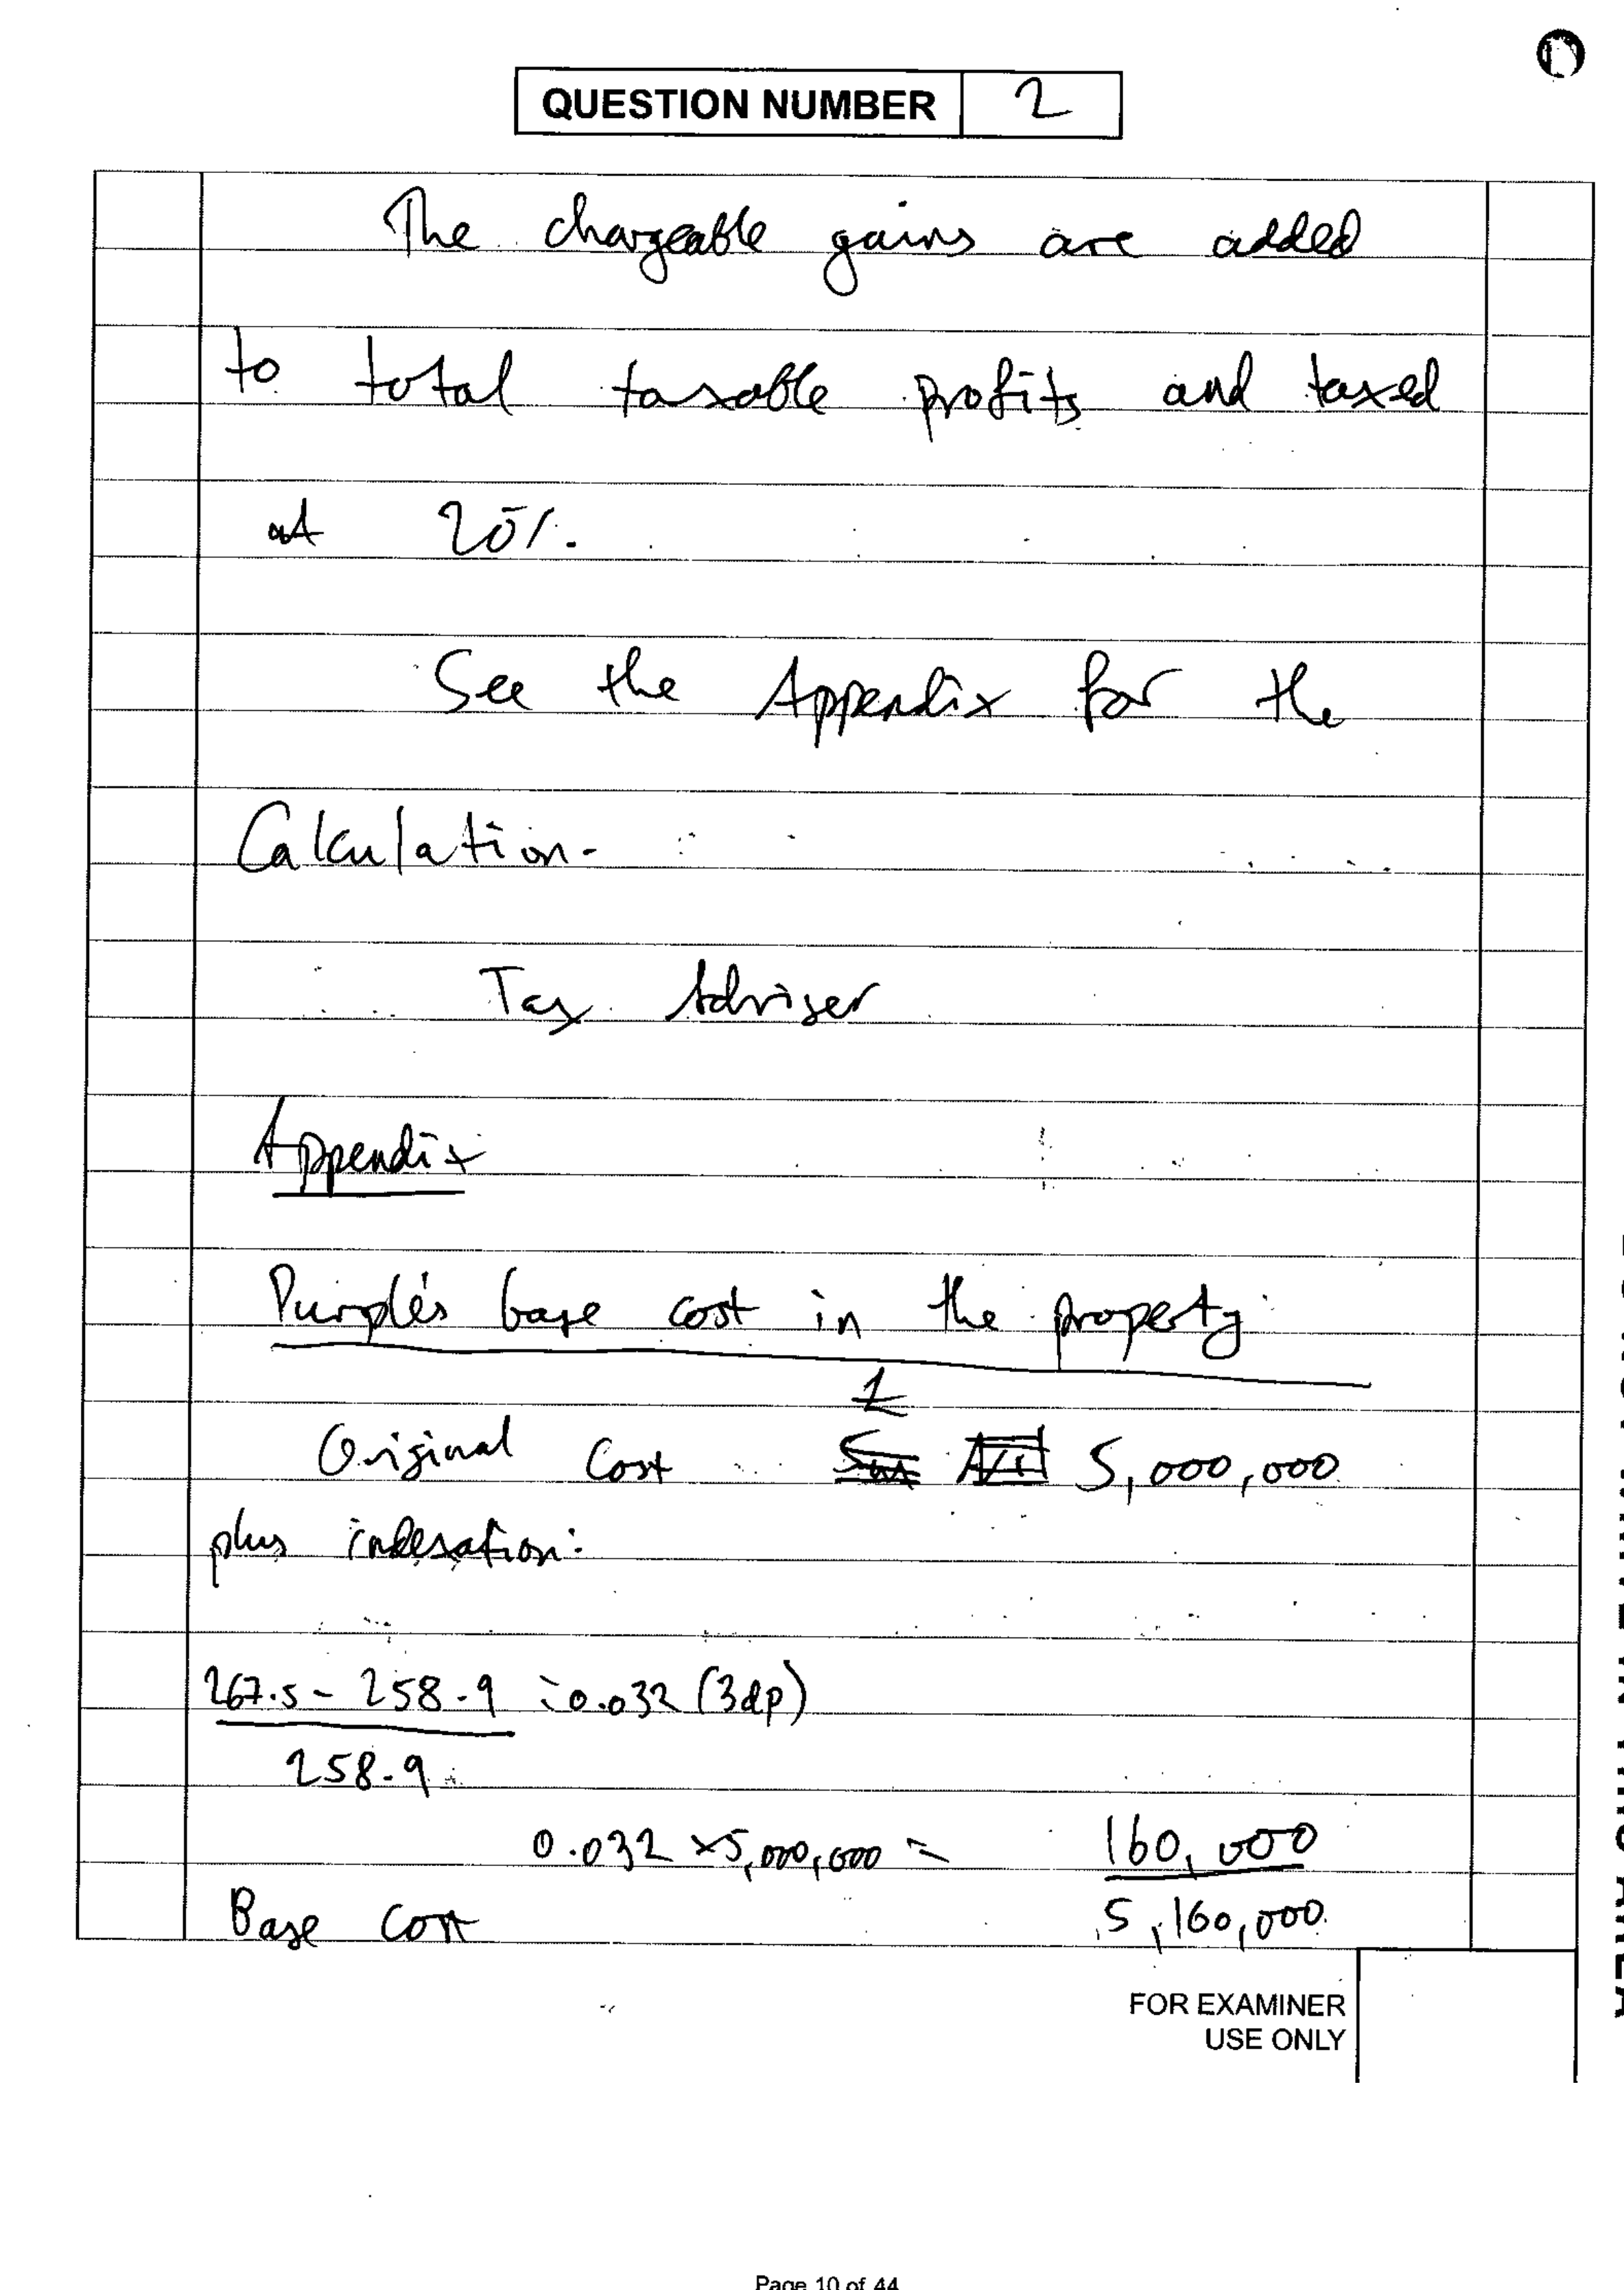 QUESTION NUMBER 2
The chargeable gains are added
to total taxable profits and taxed
at 20%.
See the Appendix for the
Calculation.
Tax Adviser
Appendix
Purple's base cost in the property
£
Original Cost 5,000,000
plus indexation:
267.5 - 258.9 = 0.032 (3dp)
258.9
0.032 x 5,000,000 = 160,000
Base cost 5,160,000
FOR EXAMINER
USE ONLY
Page 10 of 44